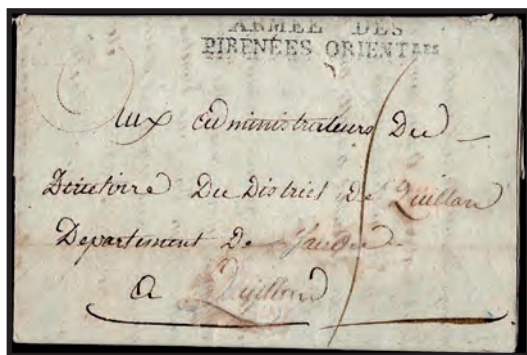 ARMÉE DES
PIRENÉES ORIENTALES
Aux administrateurs Du
Directoire Du District de Quillan
Departement De L'aude
a Quillan